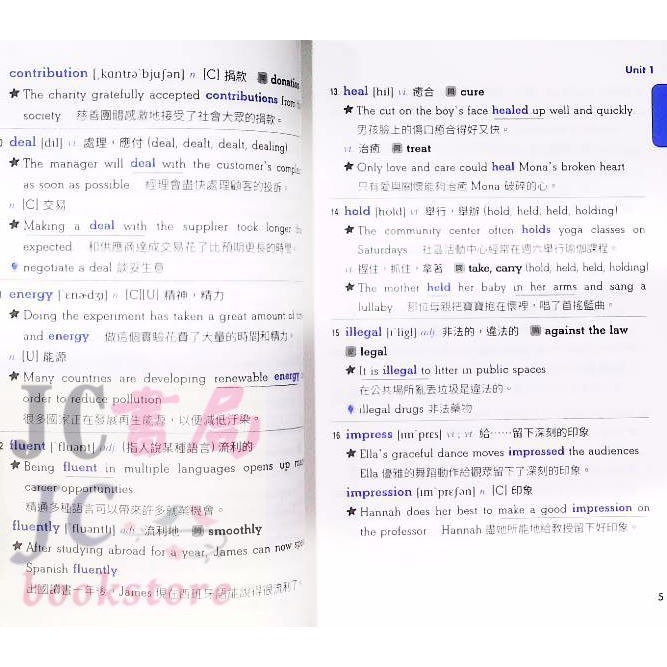 contribution [ˌkɑntrəˋbjuʃən] n [C] 捐款 同 donation
★ The charity gratefully accepted contributions from the
society 慈善團體感激地接受了社會大眾的捐款。
deal [dil] vt 處理，應付 (deal, dealt, dealt, dealing)
★ The manager will deal with the customer's
as soon as possible 經理會盡快處理顧客的投訴。
n [C] 交易
★ Making a deal with the supplier took longer
expected 和供應商達成交易花了比預期更長的時間。
negotiate a deal 談妥生意
energy [ˋɛnɚdʒɪ] n [C][U] 精神，精力
★ Doing the experiment has taken a great amount of
and energy 做這個實驗花費了大量的時間和精力。
n [U] 能源
★ Many countries are developing renewable energy
order to reduce pollution
很多國家正在發展再生能源，以便減低汙染。
fluent [ˋfluənt] adj (指人說某種語言) 流利的
★ Being fluent in multiple languages opens up
career opportunities
精通多種語言可以帶來許多就業機會。
fluently [ˋfluəntlɪ] adv 流利地 同 smoothly
★ After studying abroad for a year, James can now
Spanish fluently
出國讀書一年後，James 現在西班牙語能說得很流利了。
JC書局
JC
bookstore
Unit 1
13 heal [hil] vi 癒合 同 cure
★ The cut on the boy's face healed up well and quickly
男孩臉上的傷口癒合得好又快。
vt 治癒 同 treat
★ Only love and care could heal Mona's broken heart
只有愛與關懷能夠治癒 Mona 破碎的心。
14 hold [hold] vt 舉行，舉辦 (hold, held, held, holding)
★ The community center often holds yoga classes on
Saturdays 社區活動中心經常在週六舉行瑜伽課程。
vt 握住，抓住，拿著 同 take, carry (hold, held, held, holding)
★ The mother held her baby in her arms and sang a
lullaby 那位母親把寶寶抱在懷裡，唱了首搖籃曲。
15 illegal [ɪˋligl] adj 非法的，違法的 同 against the law
反 legal
★ It is illegal to litter in public spaces
在公共場所亂丟垃圾是違法的。
illegal drugs 非法藥物
16 impress [ɪmˋprɛs] vt ; vi 給……留下深刻的印象
★ Ella's graceful dance moves impressed the audiences
Ella 優雅的舞蹈動作給觀眾留下了深刻的印象。
impression [ɪmˋprɛʃən] n [C] 印象
★ Hannah does her best to make a good impression on
the professor Hannah 盡她所能地給教授留下好印象。
5